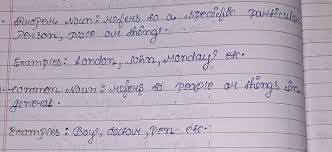 • Proper Noun: Refers to a specific particular
person, place or things.
Examples: London, John, Monday etc.
• Common Noun: Refers to people or things in
general.
Examples: Boy, doctor, pen etc.